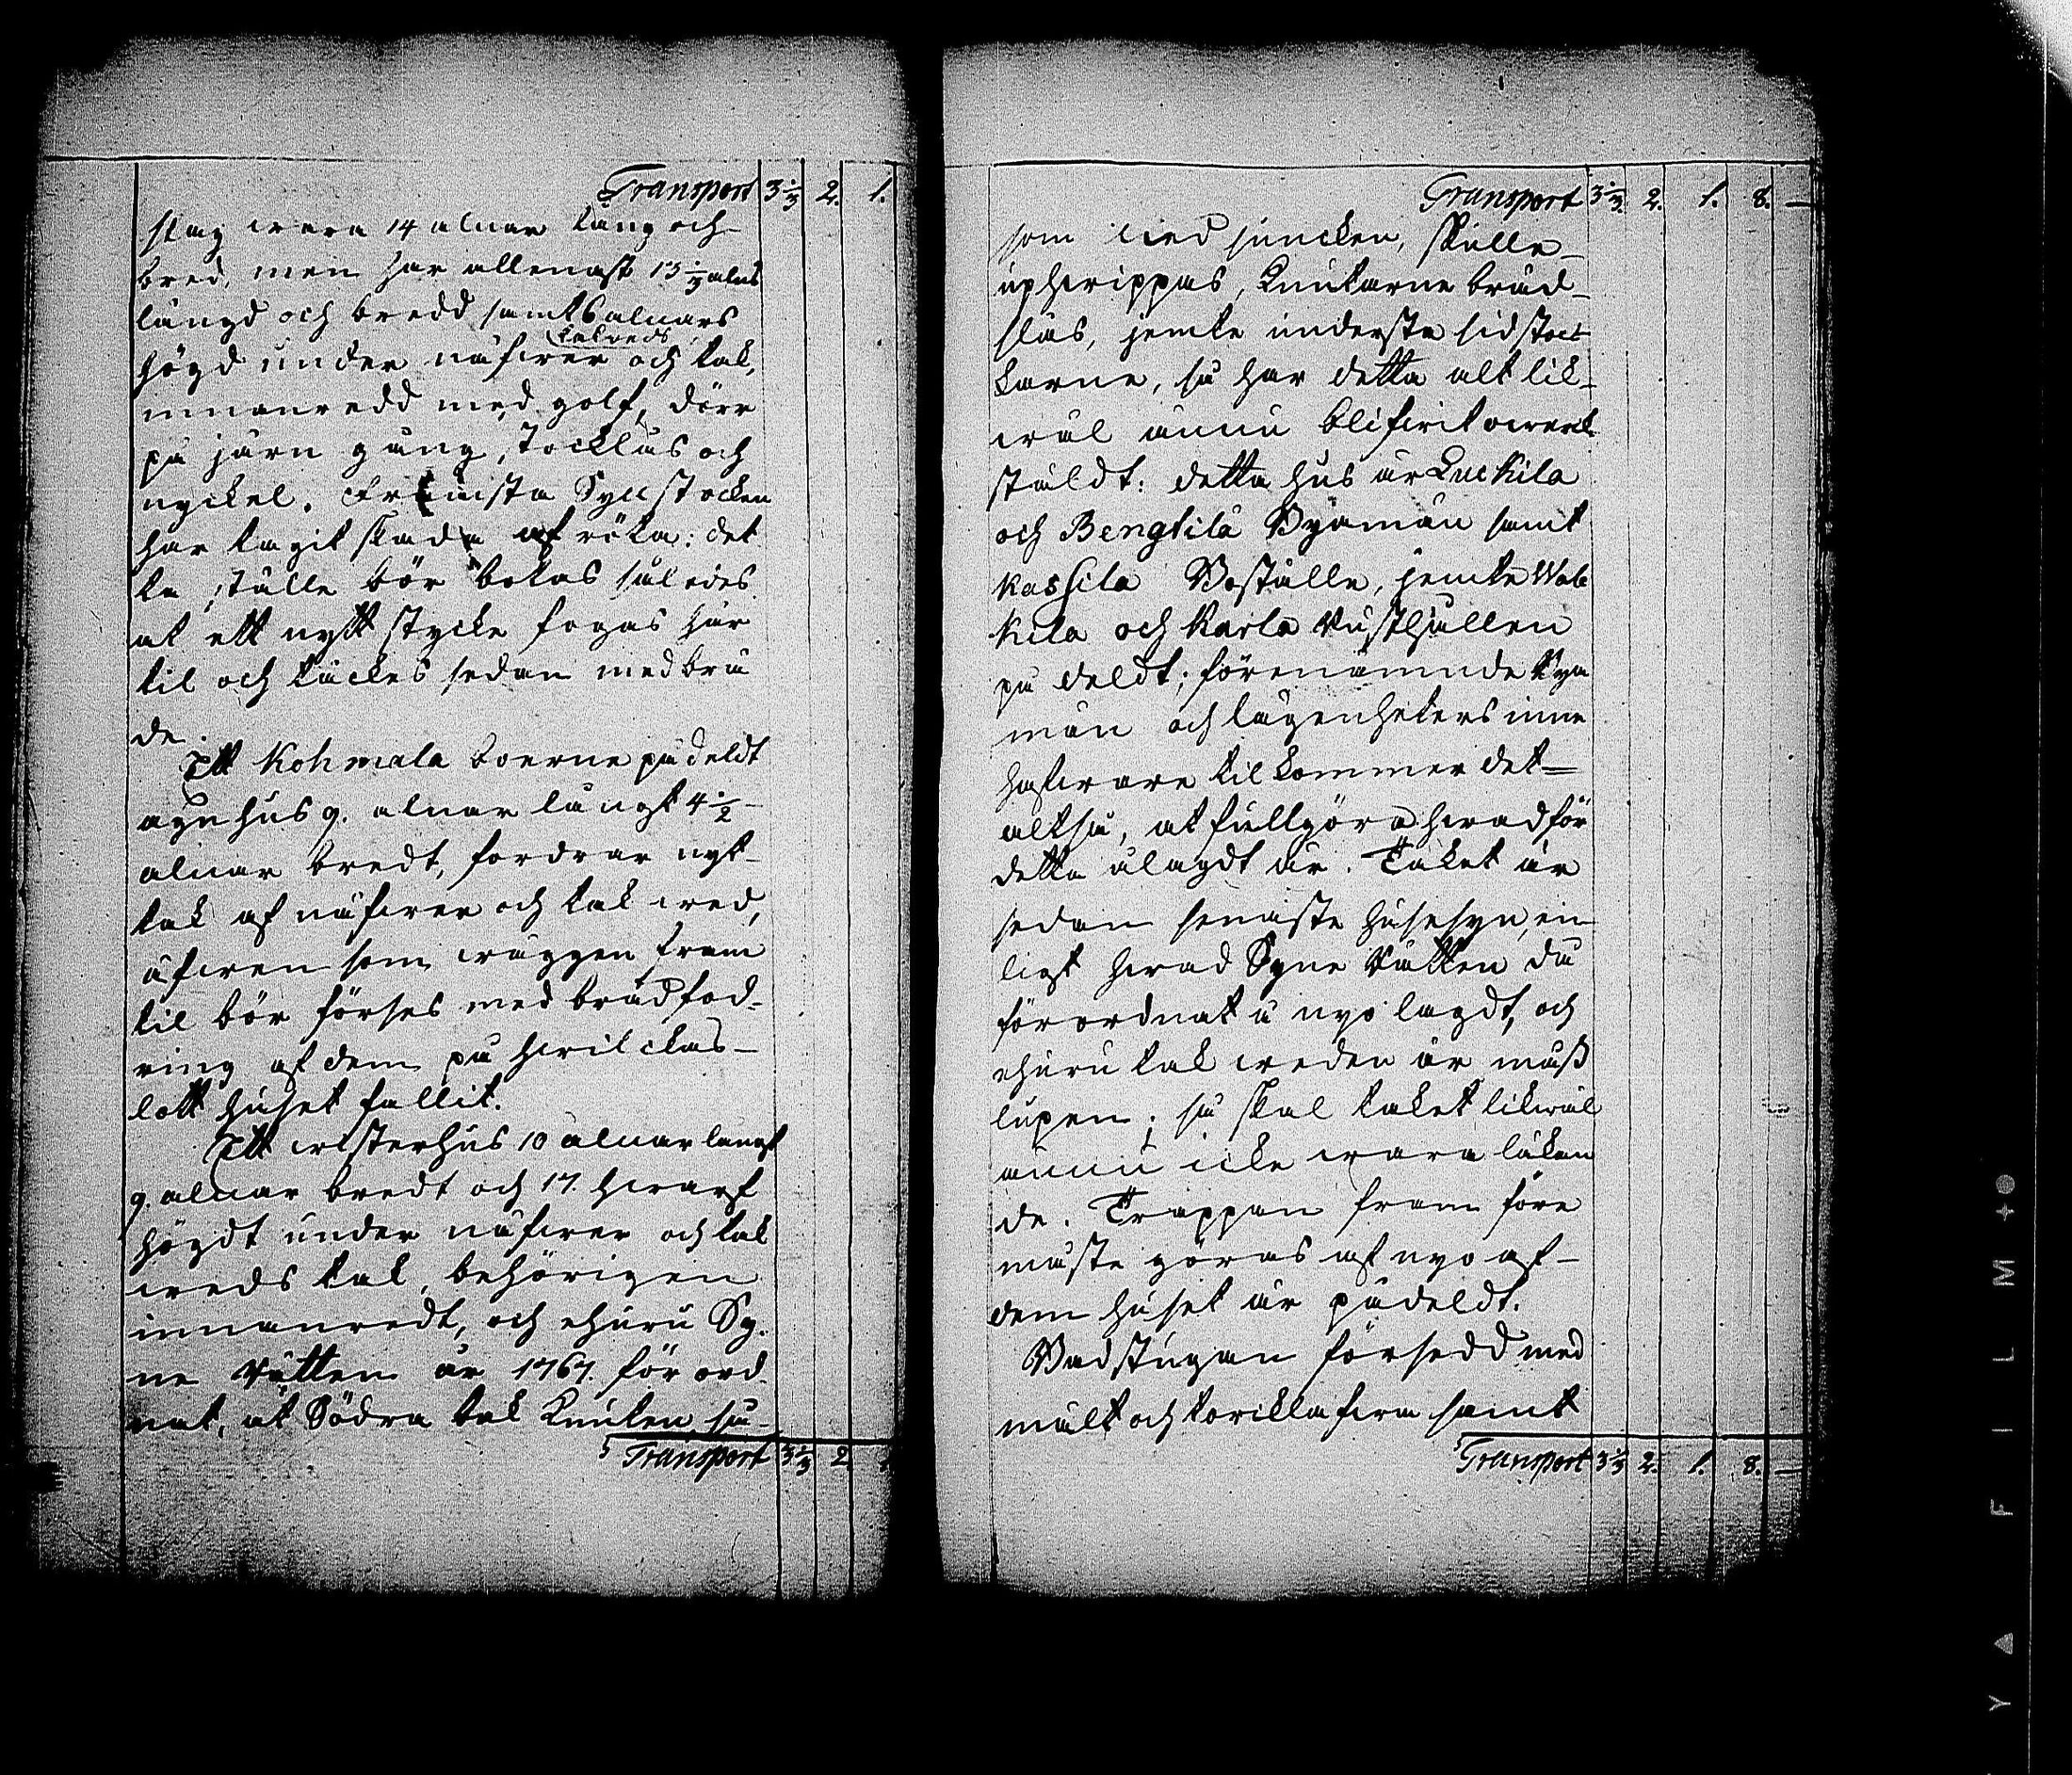 Transport 3 1/3 2. 1.
slag wara 14 alnar lång och
bred, men har allenast 13 1/3 alns
längd och bredd samt 6 alnars
högd under näfwer takveds och tak,
innanredd med golf, dörr
på järn gång, Stocklås och
nyckel. Främsta Syllstocken
har tagit skada af röta: det
ta ställe bör botas således
at ett nytt stycke fogas här
til och täckes sedan med brä
de.
Ett Kohmala boerne pådeldt
agnhus 9. alnar långt 4 1/2
alnar bredt, fordrar nytt
tak af näfwer och tak wed,
äfwen som wäggen fram
til bör förses med brädfod-
ring af dem på hwilckas
lott huset fallit.
Ett wisterhus 10 alnar långt
9. alnar bredt och 17. hwarf
högdt under näfwer och tak
weds tak, behörigen
innanredt, och ehuru Sy-
ne Rätten år 1767. förord-
nat, at Södra tak knuten så-
Transport 3 1/3 2
Transport 3 1/3 2. 1. 8. —
som ned suncken, skulle
uphwippas, knutarne bräd-
slås, jemte understa sidstoc-
karne, så har detta alt lik-
wäl ännu blifwit owerk-
stäldt: detta hus är Luckila
och Bengtilä Byamän samt
Kassila Boställe, jemte Wab
kila och Karla Rusthållen
på deldt; förenämnde Bya
män och lägenheters inne
hafware tilkommer det
altså, at fullgöra hwad för
detta ålagdt är. Taket är
sedan senaste husesyn, en
ligt hwad Syne Rätten då
förordnat å nyo lagdt, och
ehuru tak weden är måss
lupen; så skal taket likwäl
ännu icke wara läkan
de. Trappan fram före
måste göras af nyo af
dem huset är pådeldt.
Badstugan försedd med
mält och torcklafwa samt
Transport 3 1/3 2. 1. 8. —
FILM